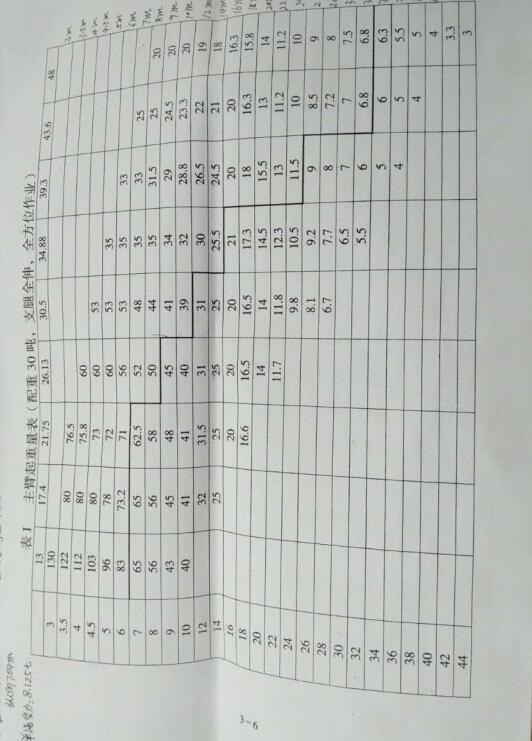 表1 主臂起重量表（配重30吨，支腿全伸，全方位作业）
13 17.4 21.75 26.13 30.5 34.88 39.3 43.6 48
3 130
3.5 122 80 76.5 3.5m
4 112 80 75.8 60 4m
4.5 103 80 73 60 53 4.5m
5 96 78 72 60 53 35 5m
6 83 73.2 71 56 53 35 33 6m
7 65 65 62.5 52 48 35 33 25 7m
8 56 56 58 50 44 35 31.5 25 20 8m
9 43 45 48 45 41 34 29 24.5 20 9m
10 40 41 41 40 39 32 28.8 23.3 20 10m
12 32 31.5 31 31 30 26.5 22 19 12m
14 25 25 25 25 25.5 24.5 21 18 14m
16 20 20 20 21 20 20 16.3 16m
18 16.6 16.5 16.5 17.3 18 16.3 15.8
20 14 14 14.5 15.5 13 14
22 11.7 11.8 12.3 13 11.2 11.2
24 9.8 10.5 11.5 10 10
26 8.1 9.2 9 8.5 9
28 6.7 7.7 8 7.2 8
30 6.5 7 7 7.5
32 5.5 6 6.8 6.8
34 5 6 6.3
36 4 5 5.5
38 4 5
40 4
42 3.3
44 3
3-6